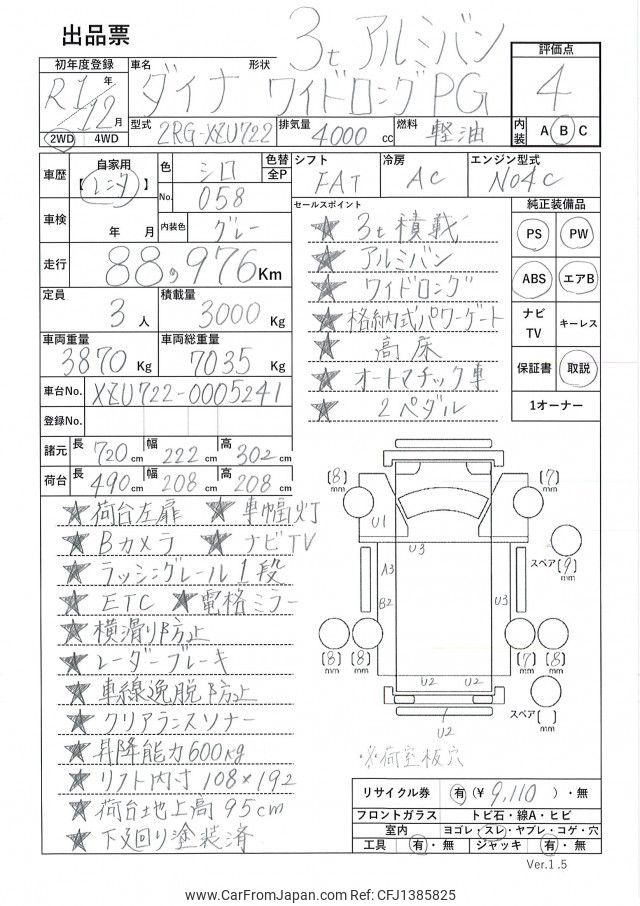 出品票
3t アルミバン
初年度登録 車名 形状 評価点
R1年 12月 ダイナ ワイドロングPG 4
2WD 4WD 型式 2RG-XZU722 排気量 4000 cc 燃料 軽油 内装 A B C
車歴 自家用 【レンタ】 色 シロ 色替 全P シフト FAT 冷房 AC エンジン型式 N04C
No. 058
車検 年 月 内装色 グレー
走行 88,976 Km
定員 3人 積載量 3000 Kg
車両重量 3870 Kg 車両総重量 7035 Kg
車台No. XZU722-0005241
登録No.
諸元 長 720 cm 幅 222 cm 高 302 cm
荷台 長 490 cm 幅 208 cm 高 208 cm
セールスポイント
★ 3t積載
★ アルミバン
★ ワイドロング
★ 格納式パワーゲート
★ 高床
★ オートマチック車
★ 2ペダル
純正装備品
PS PW
ABS エアB
ナビTV キーレス
保証書 取説
1オーナー
★ 荷台左扉 ★ 車幅灯
★ Bカメラ ★ ナビTV
★ ラッシングレール1段
★ ETC ★ 電格ミラー
★ 横滑り防止
★ レーダーブレーキ
★ 車線逸脱防止
★ クリアランスソナー
★ 昇降能力600kg
★ リフト内寸 108×192
★ 荷台地上高 95cm
★ 下廻り塗装済
(8) mm (7) mm
U1
U3 スペア (9) mm
A3
B2 U3
(8) mm (8) mm (7) mm (8) mm
U2 U2
スペア ( ) mm
U2
※荷室板穴
リサイクル券 有 (¥ 9,110 )・無
フロントガラス トビ石・線A・ヒビ
室内 ヨゴレ・スレ・ヤブレ・コゲ・穴
工具 有・無 ジャッキ 有・無
Ver.1.5
www.CarFromJapan.com Ref: CFJ1385825